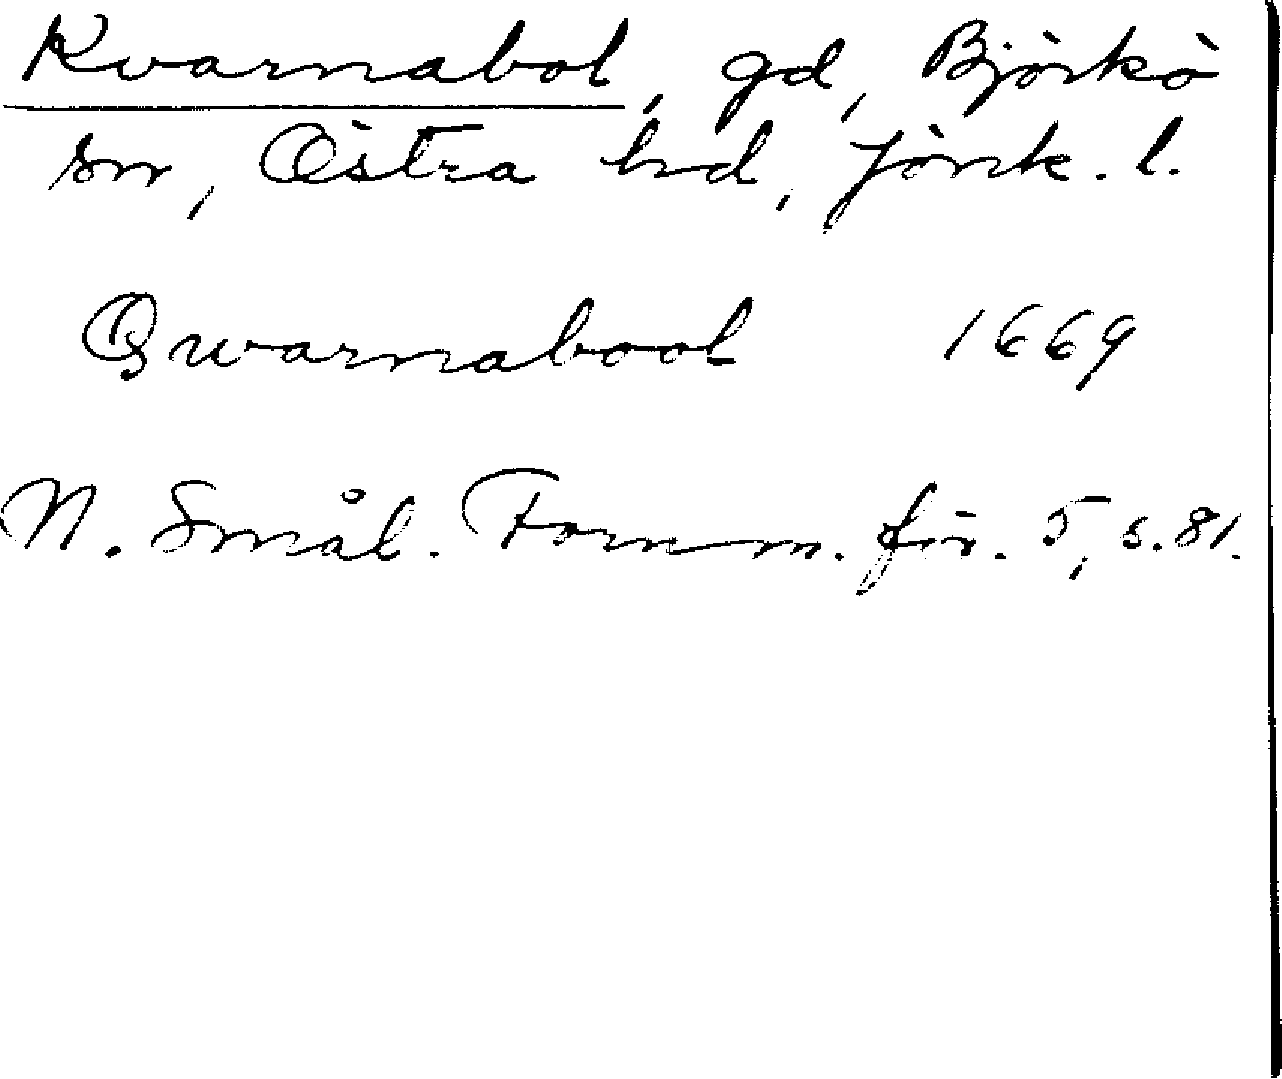 Kvarnabol, gd, Björkö
sn, Östra hd, Jönk. l.
Qwarnabool 1669
N. Smål. Fornm. för. 5, s. 81.